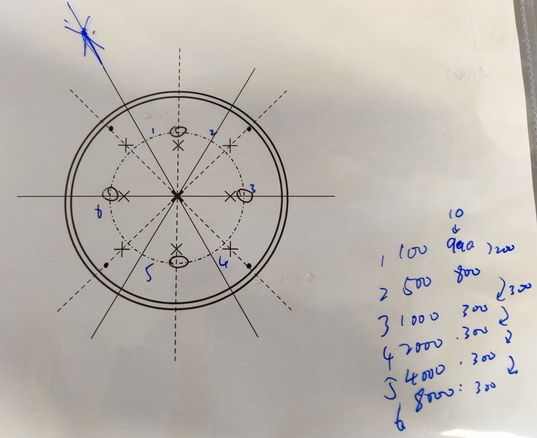 1 2
6 3
5 4
10
1 100 990 200
2 500 800
300
3 1000 300
4 2000 . 300
5 4000 . 300
6 8000 : 300